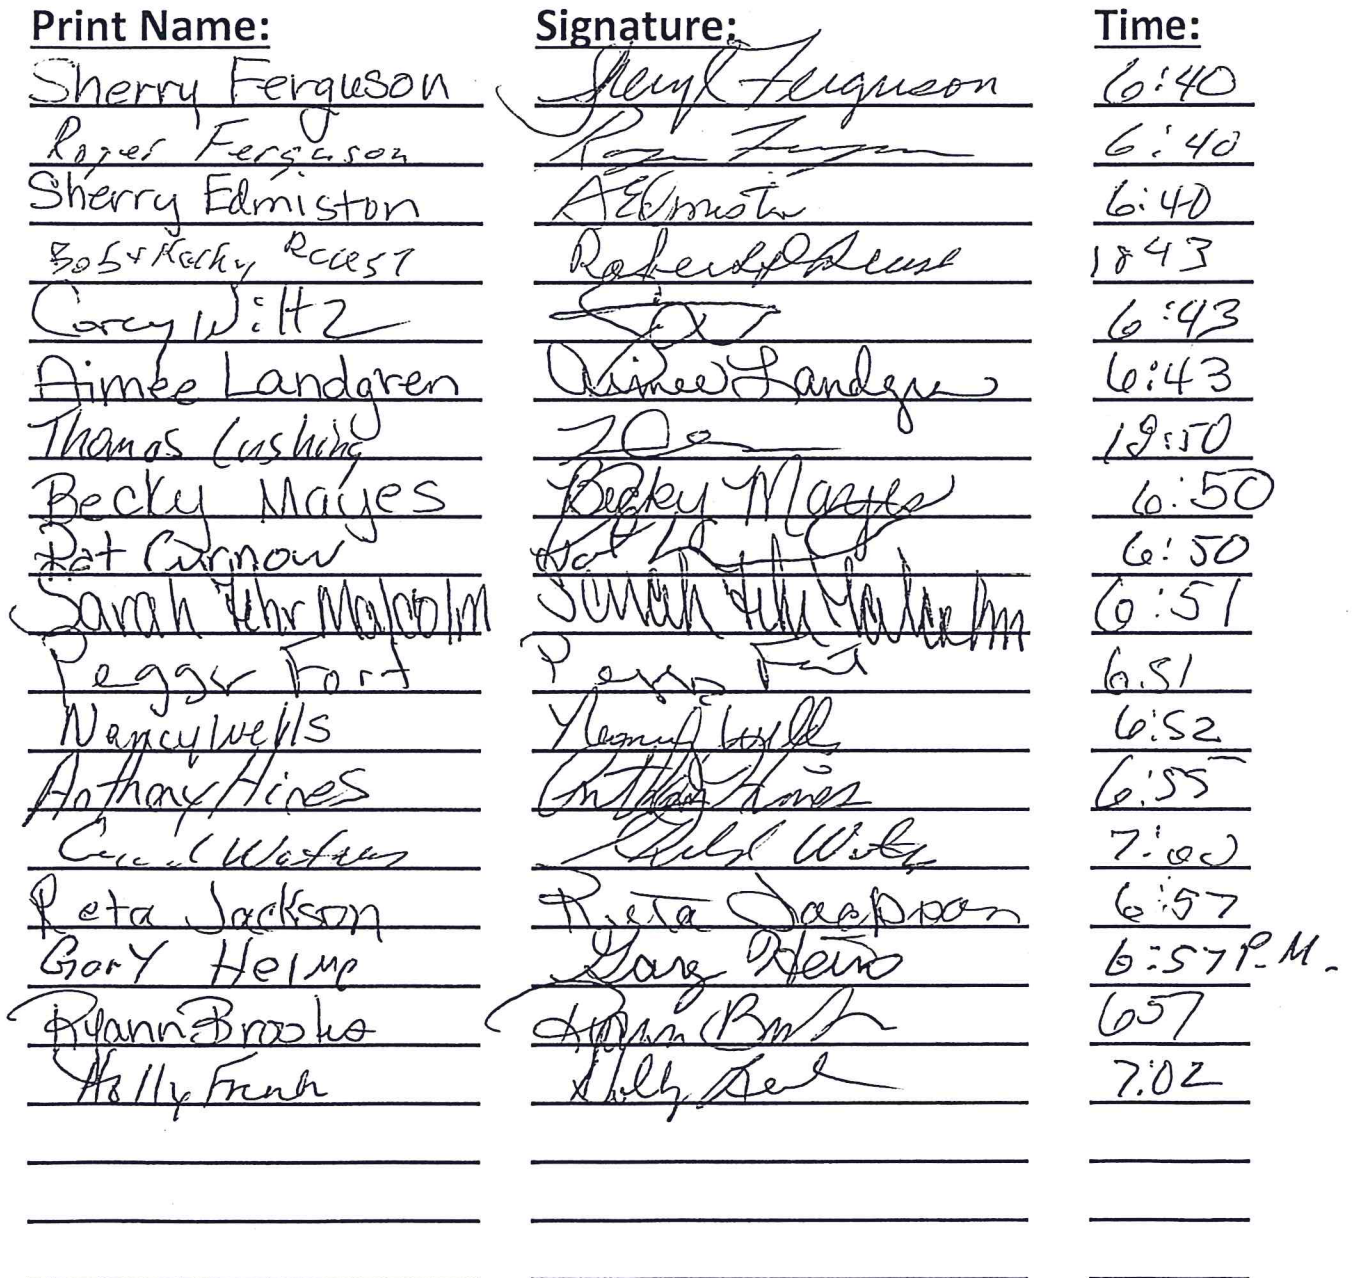 Print Name: Signature: Time:
Sherry Ferguson Sheryl Ferguson 6:40
Roger Ferguson 6:40
Sherry Edmiston 6:40
Bob & Kathy 1843
Corey Wiltz 6:43
Aimee Landgren Aimee Landgren 6:43
Thomas Cushing 18:50
Becky Mayes Becky Mayes 6:50
Pat Curnow Pat 6:50
Sarah Fehr Malcolm Sarah Fehr Malcolm 6:51
Peggy Fort Peggy Fort 6:51
Nancy Wells Nancy Wells 6:52
Anthony Hines Anthony Hines 6:55
Watson 7:00
Reta Jackson Reta Jackson 6:57
Gary Heimo Gary Heimo 6:57 P.M.
Ryann Brooks 657
Holly French Holly 7:02